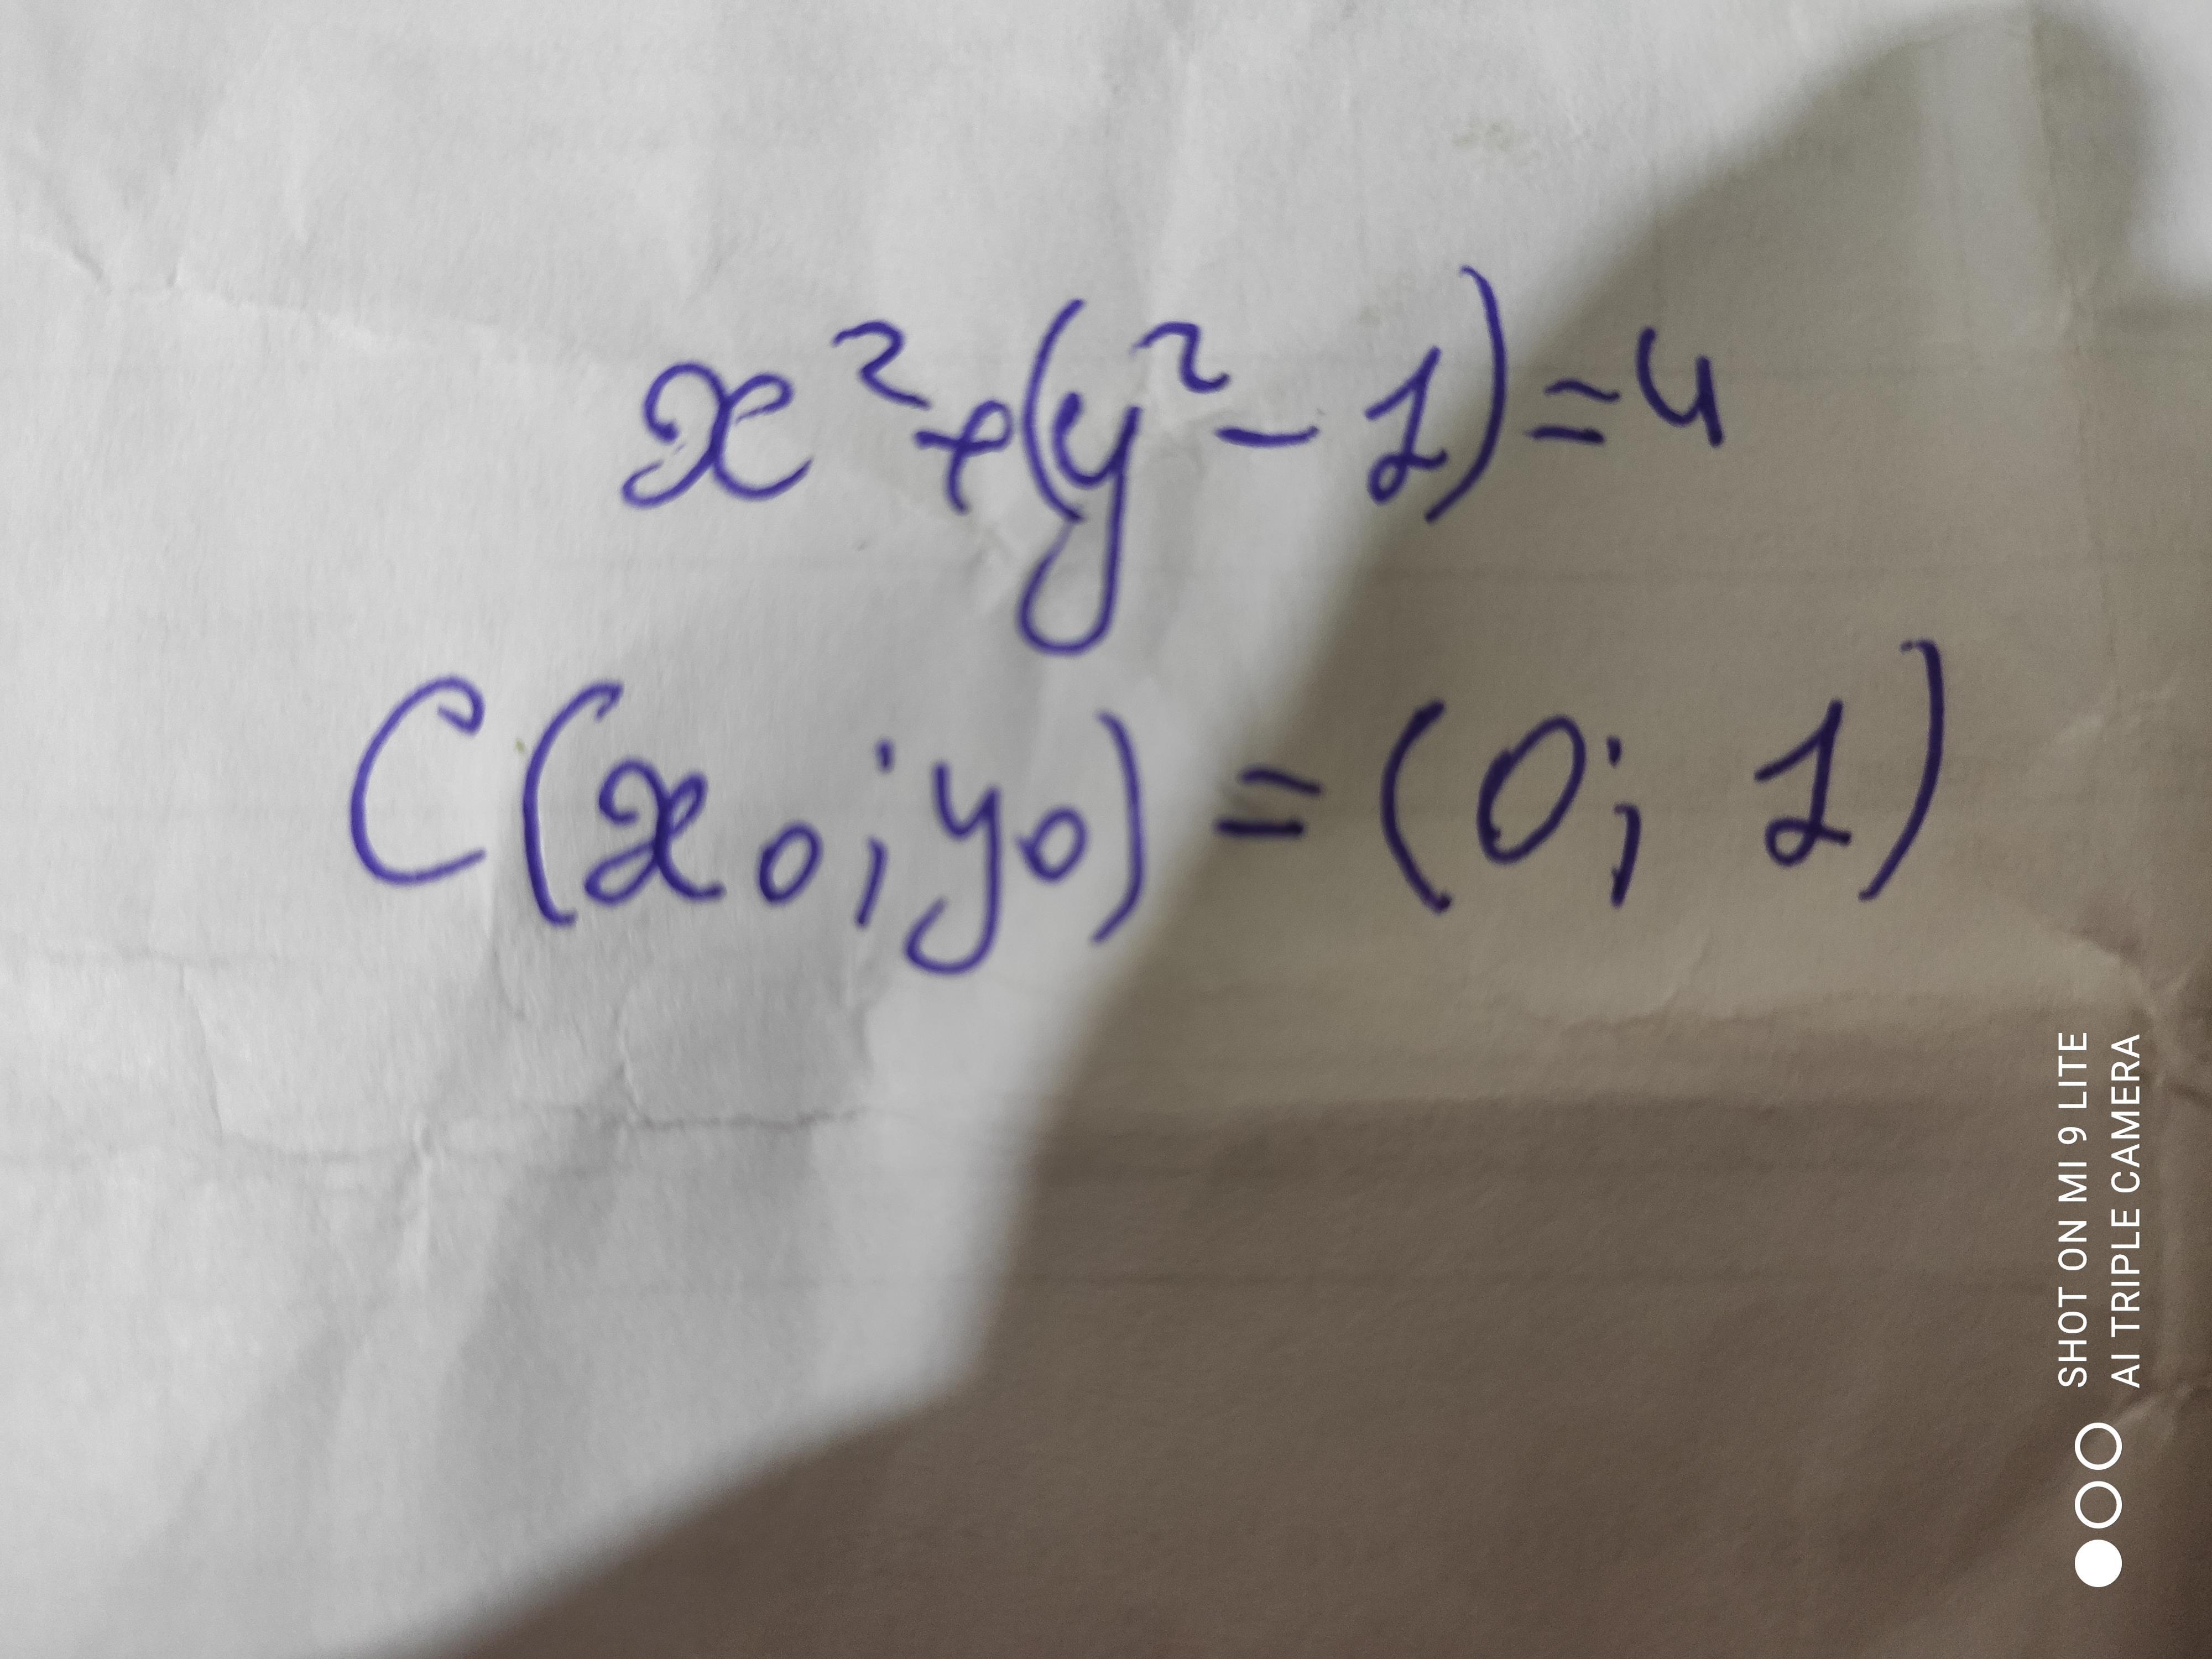 x²+(y²-1)=4
C(x₀;y₀)=(0;1)
SHOT ON MI 9 LITE
AI TRIPLE CAMERA